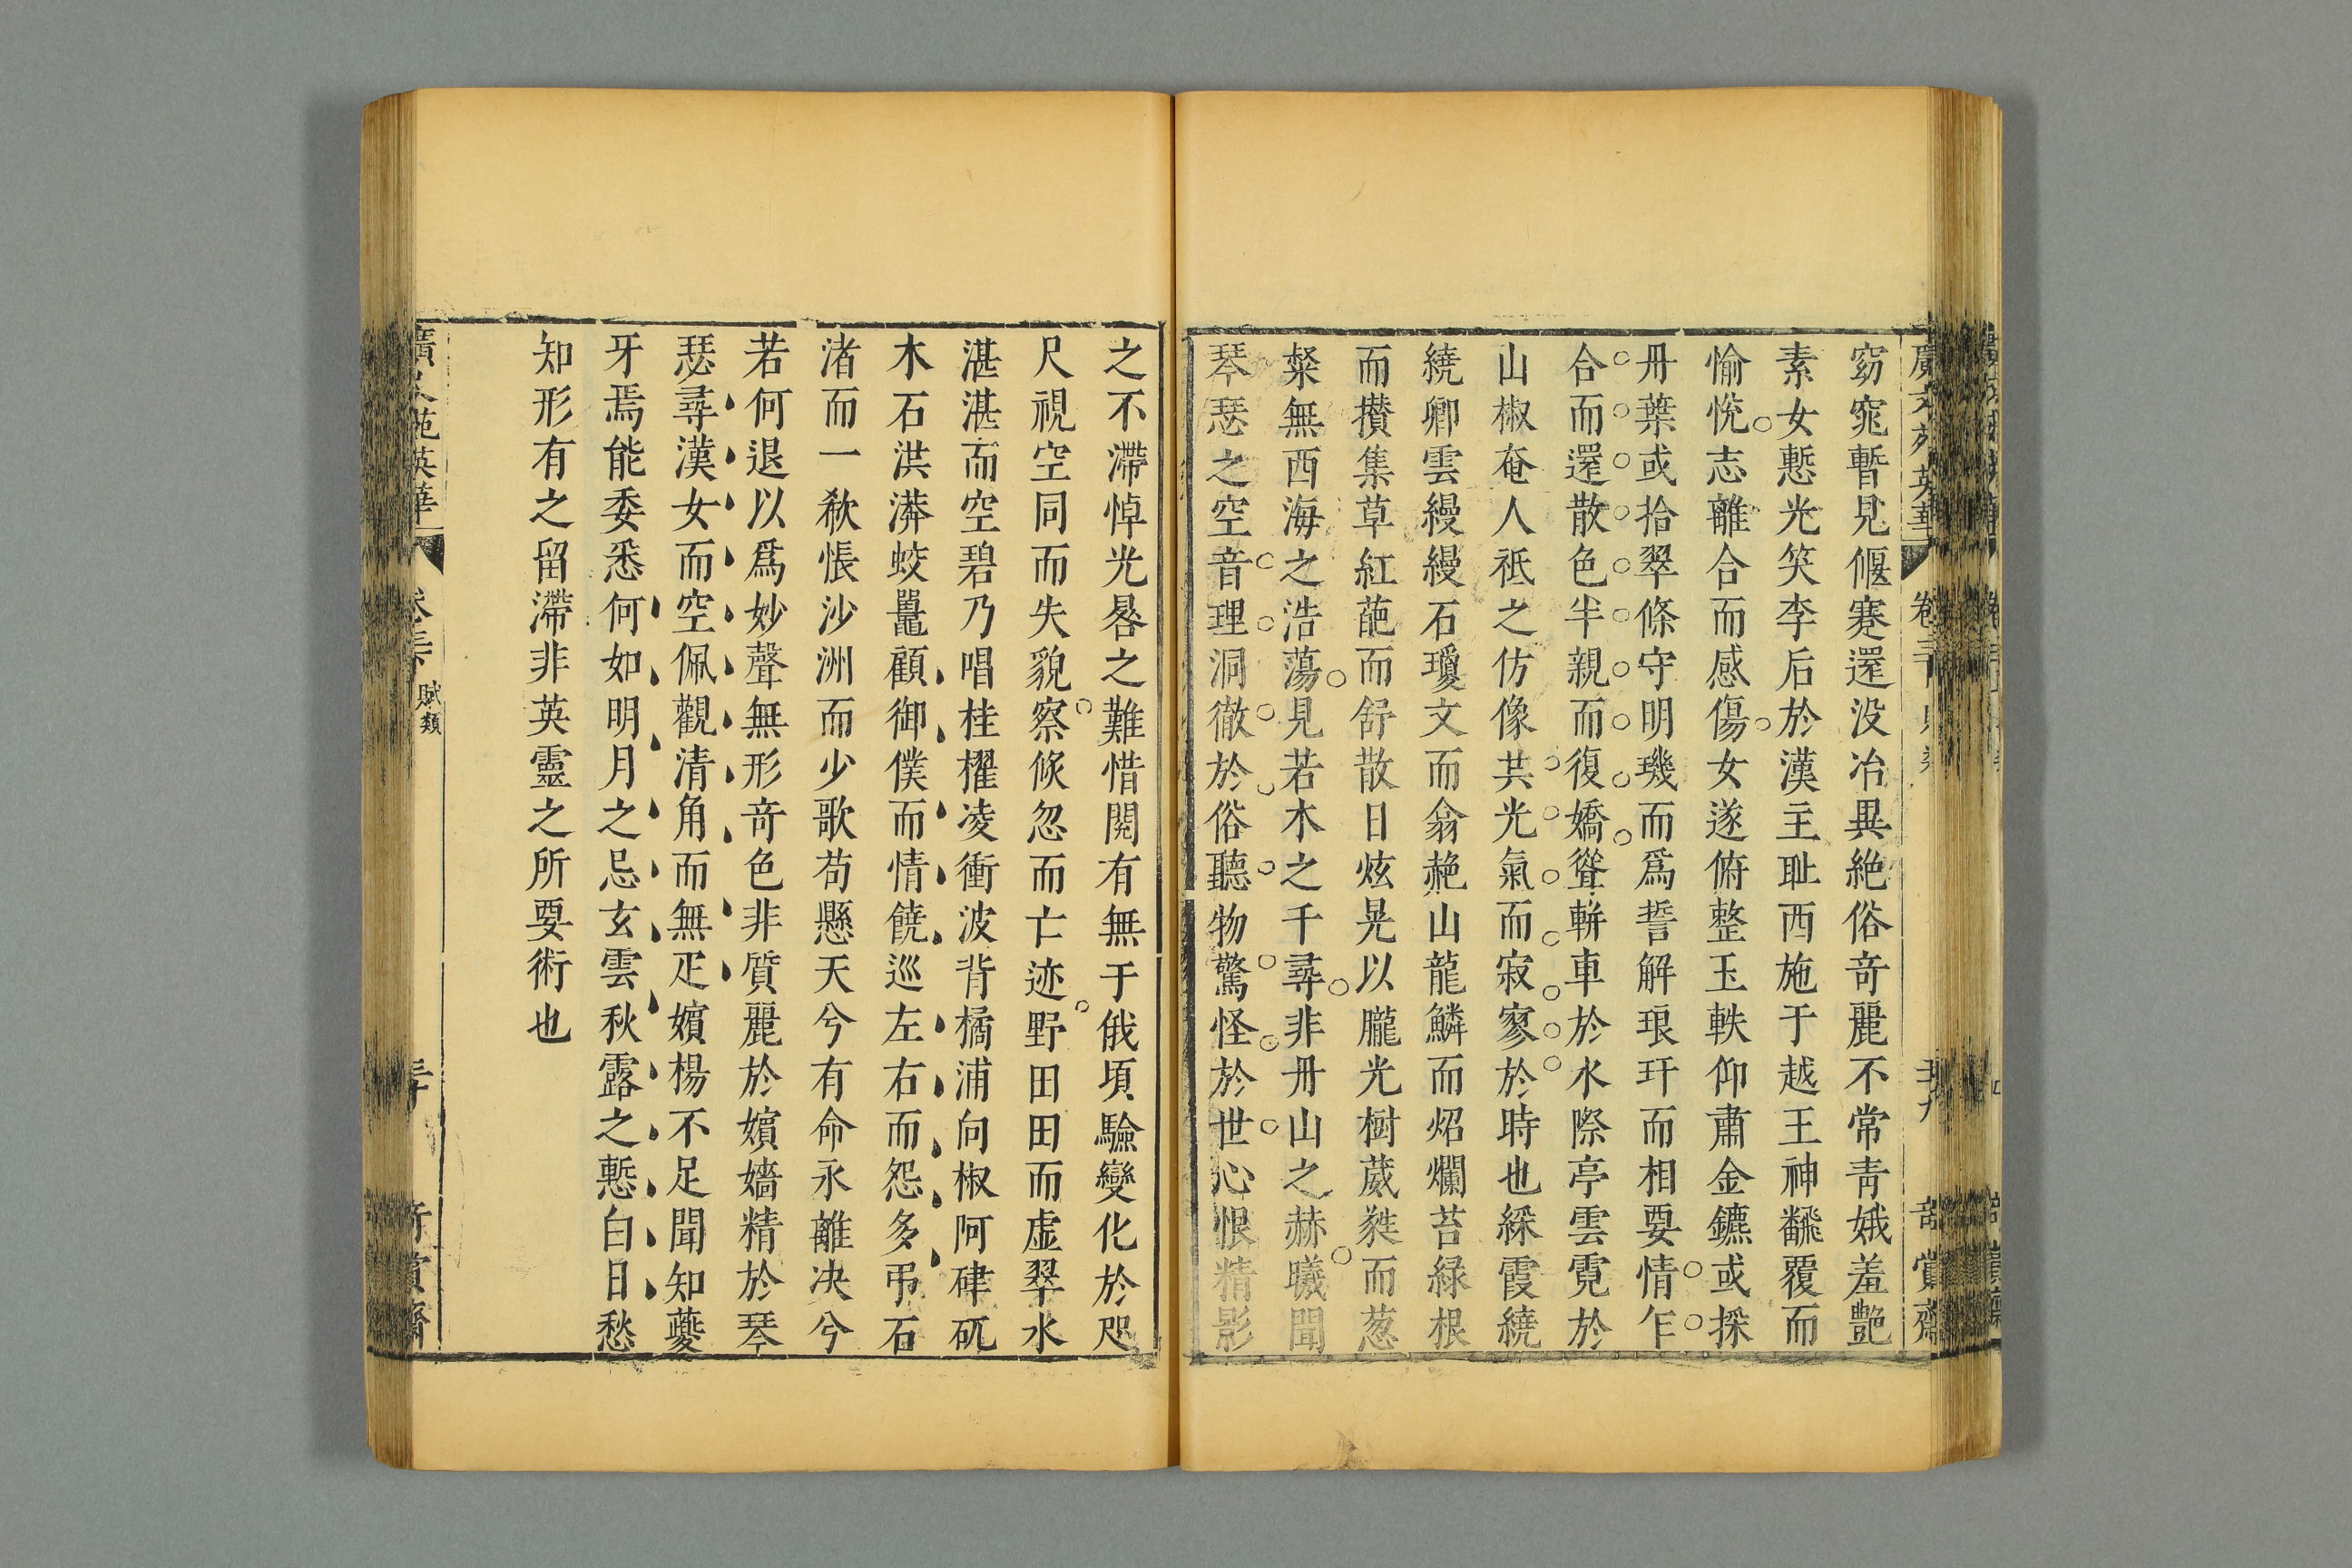 廣文苑英華
窈窕暫見偃蹇還没冶異絶俗奇麗不常青娥羞艷
素女慙光笑李后於漢主恥西施于越王神翻覆而
愉悅志離合而感傷女遂俯整玉軼仰肅金鑣或採
丹葉或拾翠條守明璣而爲誓解琅玕而相要情乍
合而還散色半親而復嬌聳軿車於水際亭雲霓於
山椒奄人祇之仿像共光氣而寂寥於時也綵霞繞
繞卿雲縵縵石瓊文而翕赩山龍鱗而炤爛苔緑根
而攅集草紅葩而舒散日炫晃以朧光樹葳蕤而葱
粲無西海之浩蕩見若木之千尋非丹山之赫曦聞
琴瑟之空音理洞徹於俗聽物驚怪於世心恨精影
之不滯悼光晷之難惜閱有無于俄頃驗變化於咫
尺視空同而失貌察倐忽而亡迹野田田而虛翠水
湛湛而空碧乃唱桂櫂凌衝波背橘浦向椒阿碑矹
木石洪漭蛟鼉顧御僕而情饒巡左右而怨多弔石
渚而一欷悵沙洲而少歌苟懸天兮有命永離決兮
若何退以爲妙聲無形奇色非質麗於嬪嬙精於琴
瑟尋漢女而空佩觀清角而無疋嬪楊不足聞知夔
牙焉能委悉何如明月之忌玄雲秋露之慙白日愁
知形有之留滯非英靈之所要術也
廣文苑英華
賦類